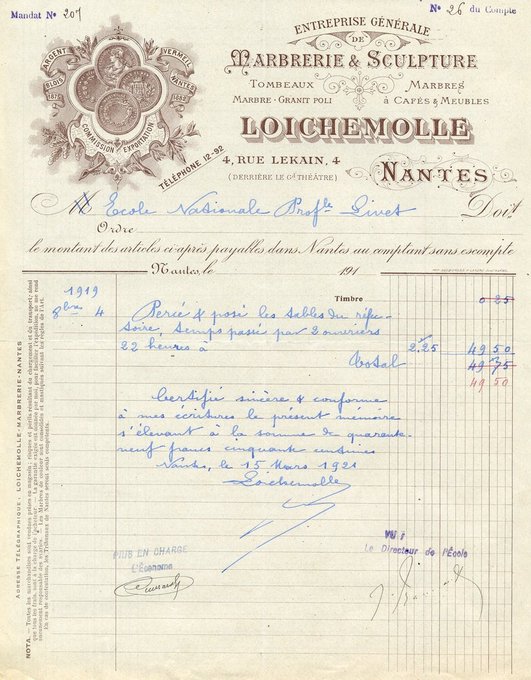 Mandat No 207
No 26 du Compte
ENTREPRISE GÉNÉRALE
DE
MARBRERIE & SCULPTURE
TOMBEAUX
MARBRE - GRANIT POLI
MARBRES
à CAFÉS & MEUBLES
LOICHEMOLLE
4, RUE LEKAIN, 4
(DERRIÈRE LE Gd THÉÂTRE)
NANTES
ARGENT
VERMEIL
BLOIS
NANTES
1875
1882
COMMISSION
EXPORTATION
TÉLÉPHONE 12-92
M École Nationale Profle Livet Doit
Ordre
le montant des articles ci-après payables dans Nantes au comptant sans escompte
Nantes, le 191
1919
Timbre 0 25
8bre 4 Percé & posé les tables du réfec-
toire, temps passé par 2 ouvriers
22 heures à 2,25 49 50
Total 49 75
49 50
Certifié sincère & conforme
à mes écritures le présent mémoire
s'élevant à la somme de quarante
neuf francs cinquante centimes
Nantes, le 15 Mars 1921
Loichemolle
PRIS EN CHARGE
L'Économe
VU :
Le Directeur de l'École
ADRESSE TÉLÉGRAPHIQUE : LOICHEMOLLE-MARBRERIE-NANTES
NOTA. — Toutes les marchandises sont vendues prises en magasin; risques et périls résultant du chargement et du transport, ainsi
En cas de contestation, les Tribunaux de Nantes seront seuls compétents.